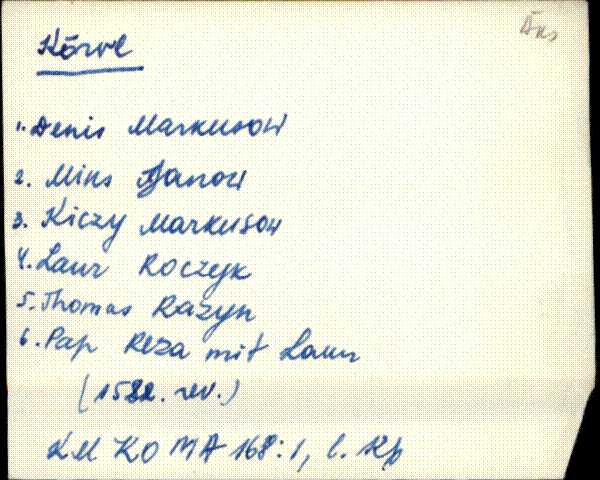 Kõrve
1. Denis Markusow
2. Miks Janow
3. Kiczy Markusow
4. Laur Roczyk
5. Thomas Razyn
6. Pap Reza mit Laur
(1582. rev.)
KM KO MA 168:1, l.